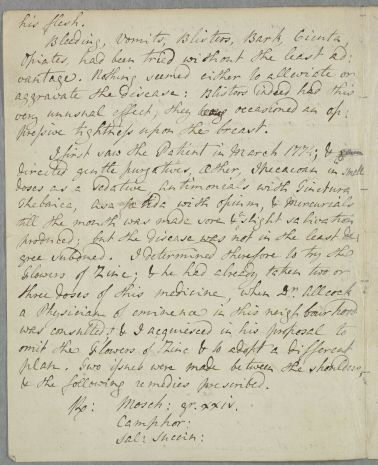 his flesh.
Bleeding, Vomits, Blisters, Bark, Cicuta,
Opiates, had been tried without the least ad:
vantage. Nothing seemed either to alleviate or
aggravate the disease: Blisters indeed had this
very unusual effect, they occasioned an op:
pressive tightness upon the breast.
I first saw the Patient in March 1774; &
directed gentle purgatives, Æther, Ipecacoan in small
doses as a sedative, antimonials with Tinctura
Thebaica, asa foetida with opium, & Mercurials
till the mouth was made sore & slight salivation
produced; but the disease was not in the least de:
gree subdued. I determined therefore to try the
flowers of Zinc; & he had already taken two or
three doses of this medicine, when Dr. Alcock
a Physician of eminence in this neighbourhood
was consulted; & I acquiesced in his proposal to
omit the flowers of Zinc & to adopt a different
plan. Two issues were made between the shoulders,
& the following remedies prescribed.
Rx: Mosch: gr. xxis.
Camphor:
Sal: Succin: